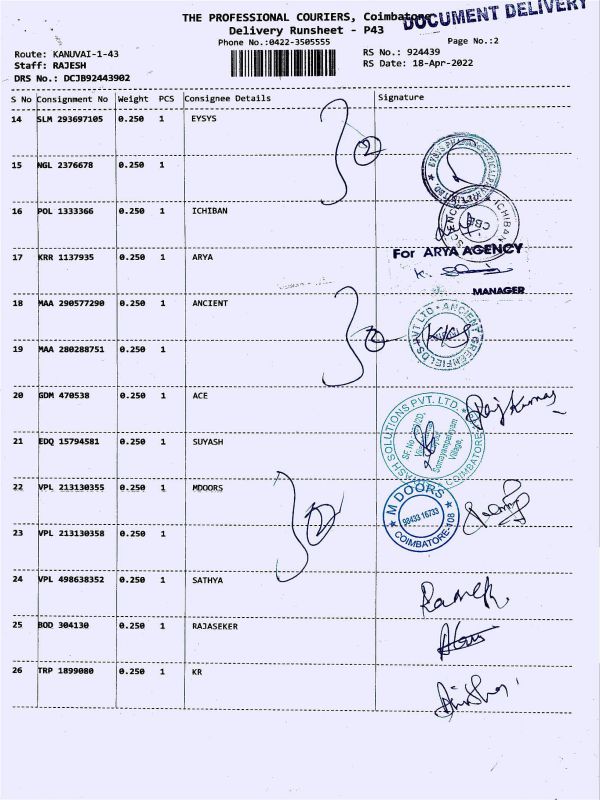 THE PROFESSIONAL COURIERS, Coimbatore
DOCUMENT DELIVERY
Delivery Runsheet - P43
Phone No.:0422-3505555
Page No.:2
Route: KANUVAI-1-43
RS No.: 924439
Staff: RAJESH
RS Date: 18-Apr-2022
DRS No.: DCJB92443902
S No Consignment No Weight PCS Consignee Details Signature
14 SLM 293697105 0.250 1 EYSYS
2
EYSYS PHARMACEUTICAL
15 NGL 2376678 0.250 1
16 POL 1333366 0.250 1 ICHIBAN
ICHIBAN
CBE
17 KRR 1137935 0.250 1 ARYA
For ARYA AGENCY
MANAGER
18 MAA 290577290 0.250 1 ANCIENT
2
ANCIENT GREENFIELDS PVT LTD
19 MAA 280288751 0.250 1
20 GDM 470538 0.250 1 ACE
Raj Kumar
21 EDQ 15794581 0.250 1 SUYASH
SOLUTIONS PVT. LTD.
Somayampalayam
Village,
COIMBATORE
22 VPL 213130355 0.250 1 MDOORS
2
M DOORS
98433 16733
COIMBATORE-108
23 VPL 213130358 0.250 1
24 VPL 498638352 0.250 1 SATHYA
25 BOD 304130 0.250 1 RAJASEKER
26 TRP 1899080 0.250 1 KR